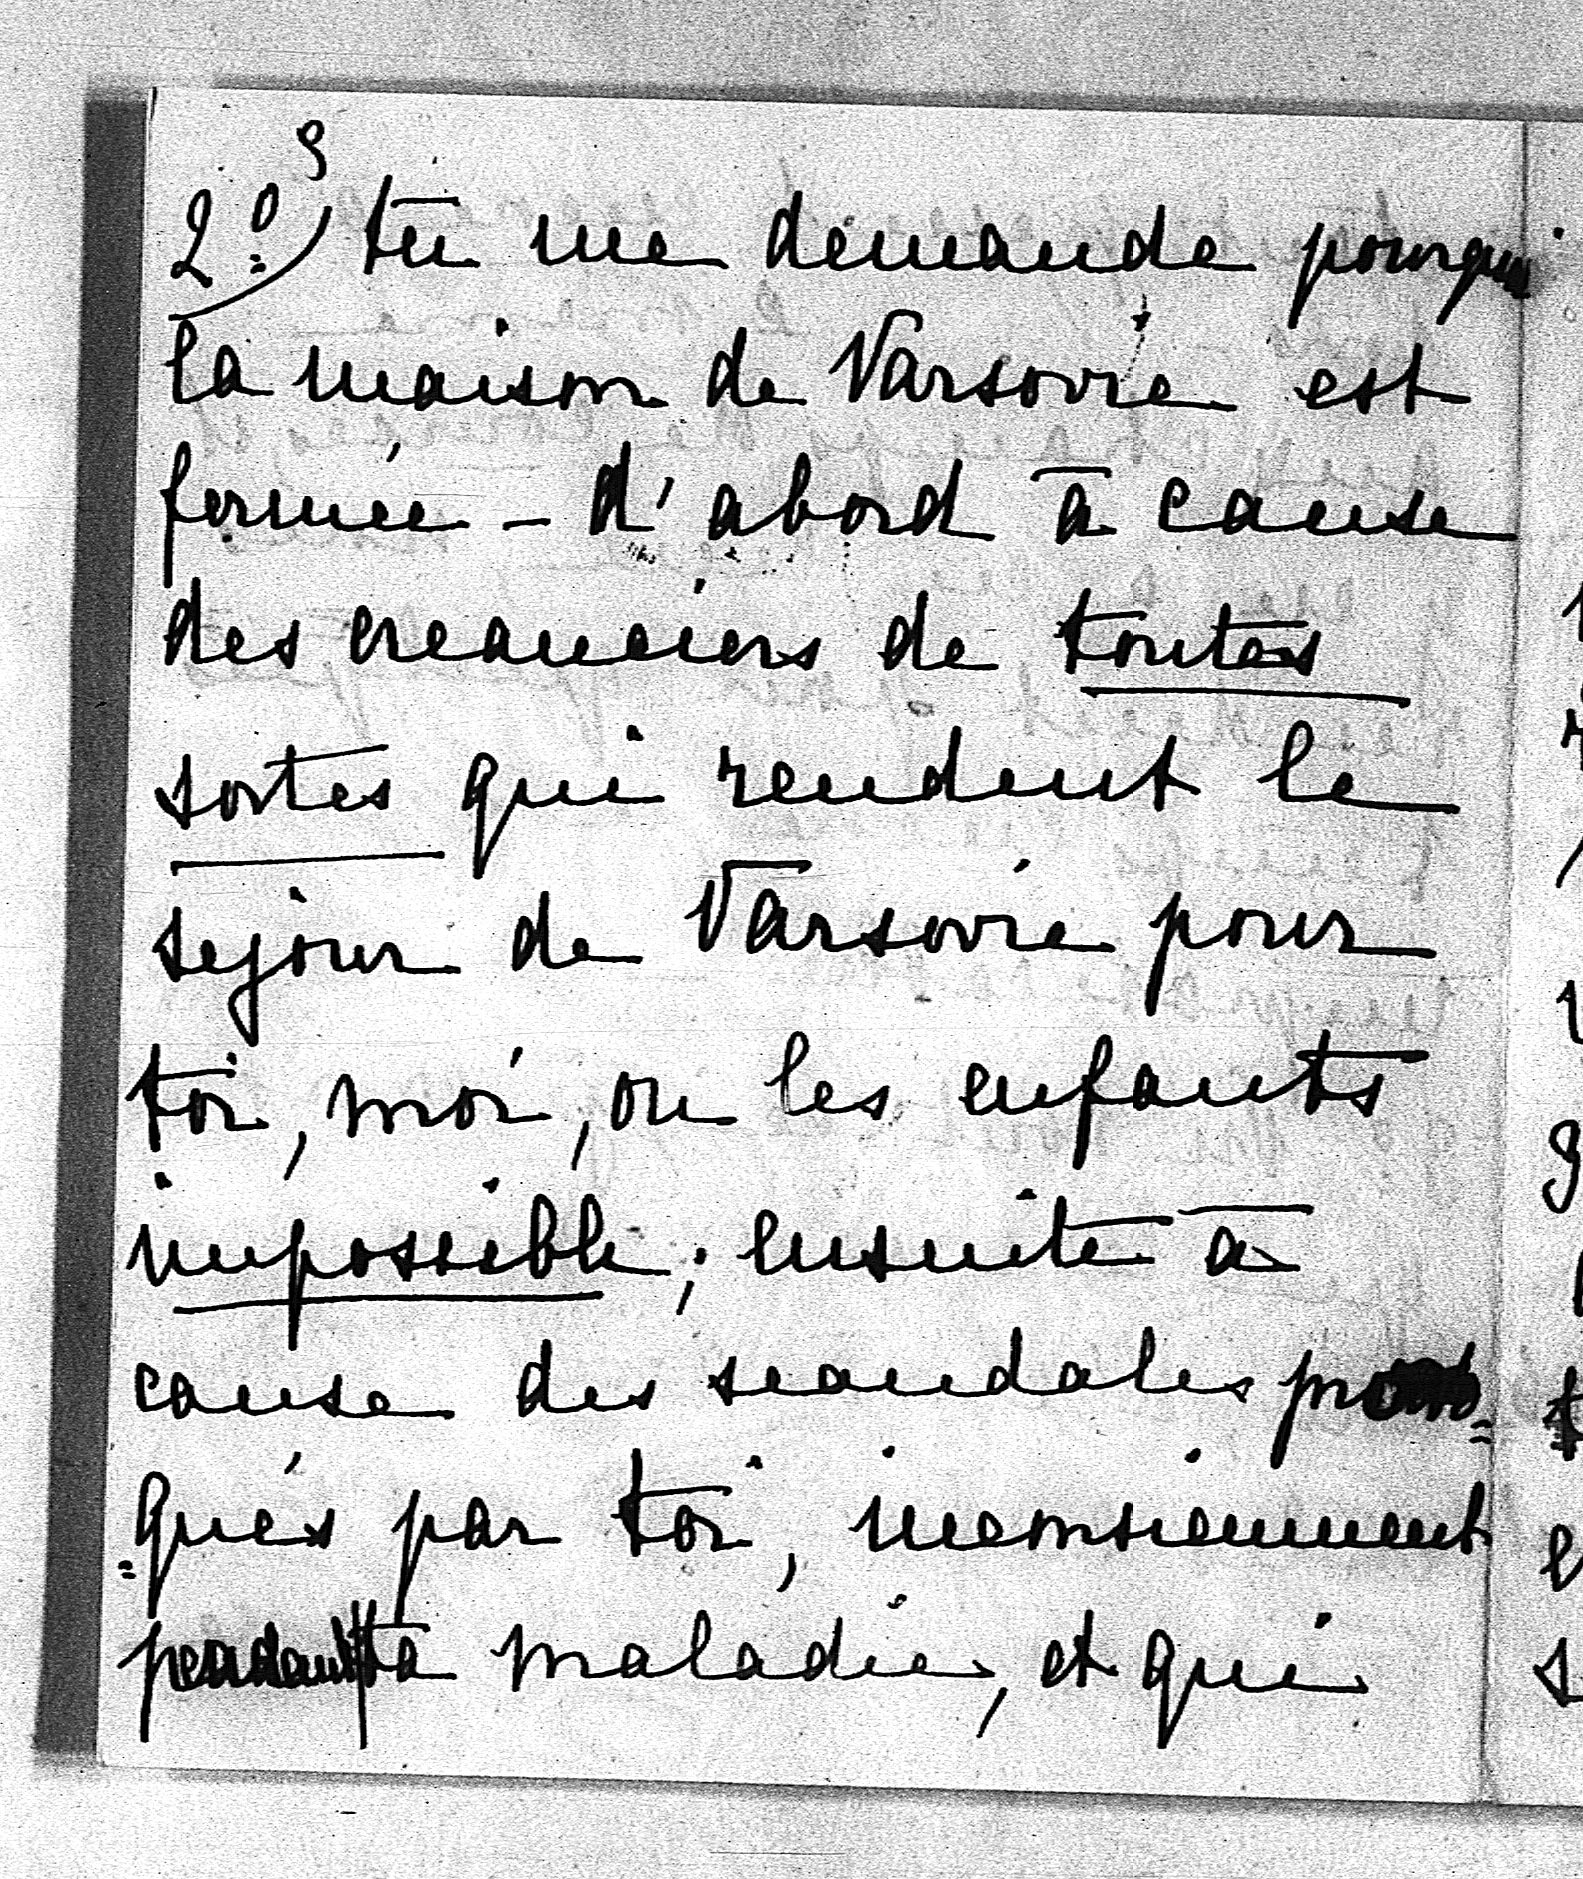 9
2º) tu me demande pourquoi
la maison de Varsovie est
fermée - d'abord à cause
des creanciers de toutes
sortes qui rendent le
sejour de Varsovie pour
toi, moi, ou les enfants
impossible; ensuite à
cause des scandales pro=
=qués par toi, inconsciemment
pendant ta maladie, et qui